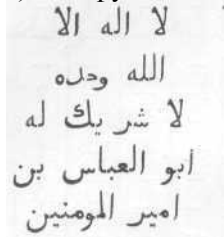 لا اله الا
الله وحده
لا شريك له
أبو العباس بن
امير المومنين